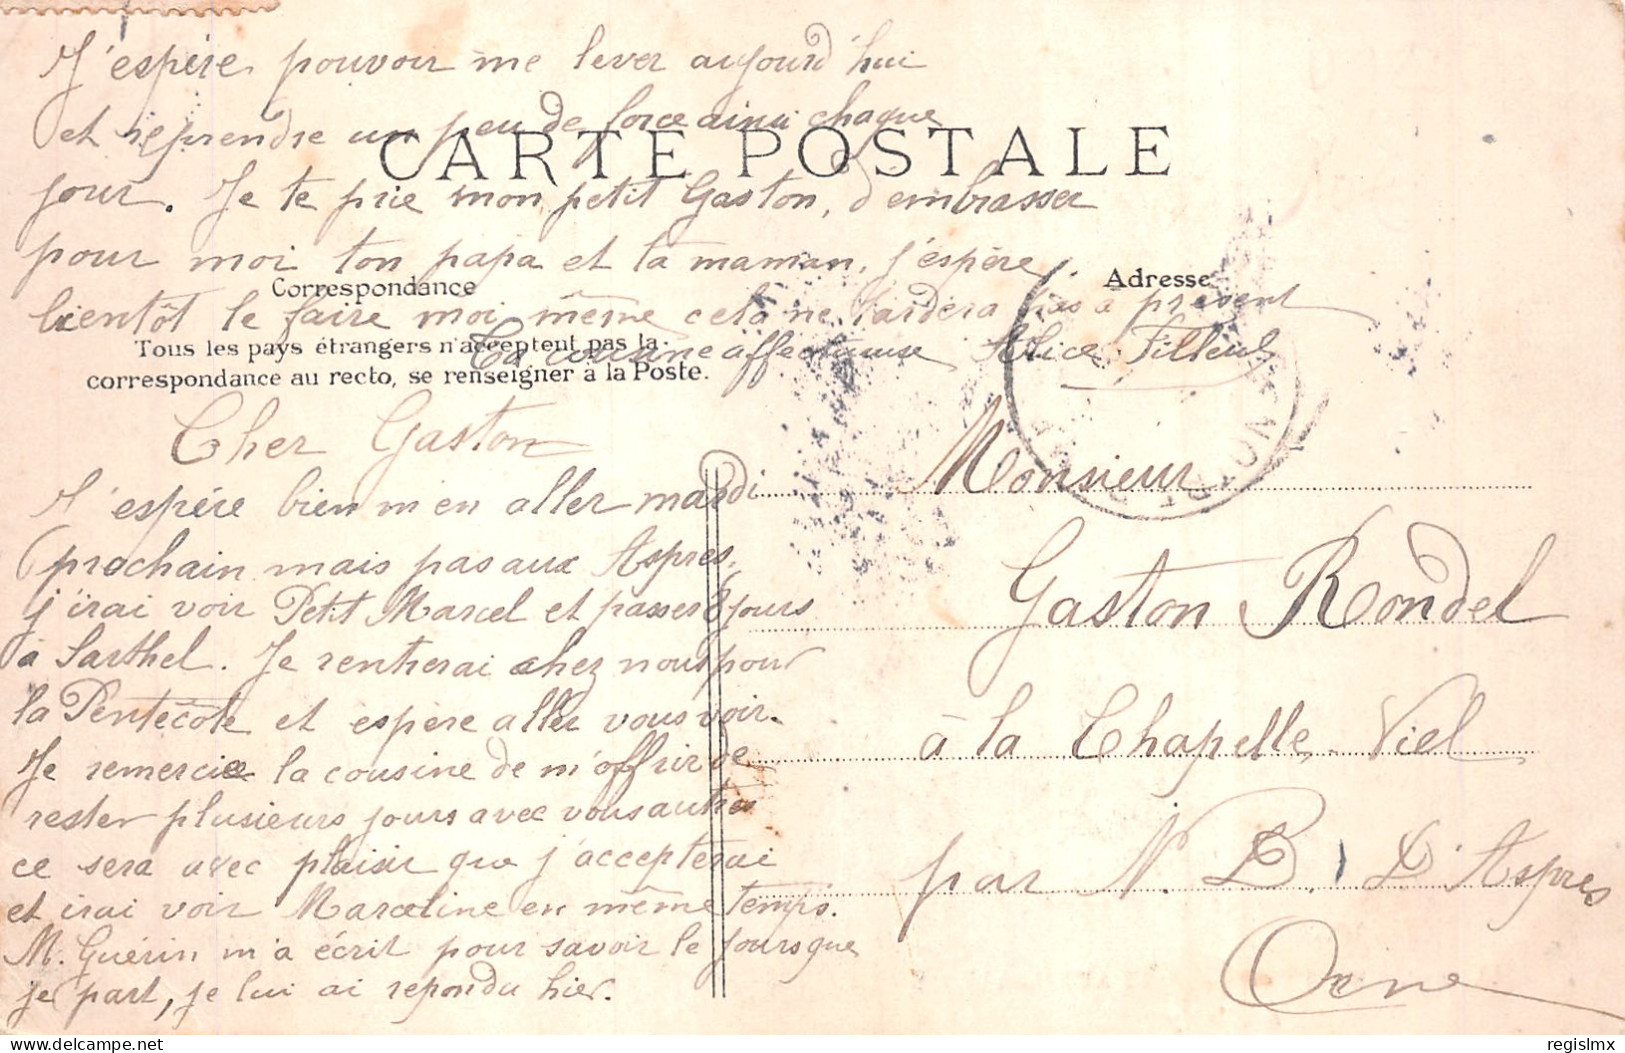 J'espère pouvoir me lever aujourd'hui
et reprendre un peu de force ainsi chaque
CARTE POSTALE
jour. Je te prie mon petit Gaston, d'embrasser
pour moi ton papa et ta maman, j'espère
Correspondance
Adresse
bientôt le faire moi même cela ne tardera pas à présent
Tous les pays étrangers n'acceptent pas la
Ta cousine affectueuse Alice Filleul
correspondance au recto, se renseigner à la Poste.
Cher Gaston
J'espère bien m'en aller mardi
prochain mais pas aux Aspres,
j'irai voir Petit Marcel et passer 8 jours
à Sarthel. Je rentrerai chez nous pour
la Pentecôte et espère aller vous voir.
Je remercie la cousine de m'offrir de
rester plusieurs jours avec vous autres
ce sera avec plaisir que j'accepterai
et irai voir Marceline en même temps.
M. Guérin m'a écrit pour savoir le jours que
je part, je lui ai repondu hier.
Monsieur
Gaston Rondel
à la Chapelle-Viel
par N. D. D'Aspres
Orne
delcampe.net
regislmx